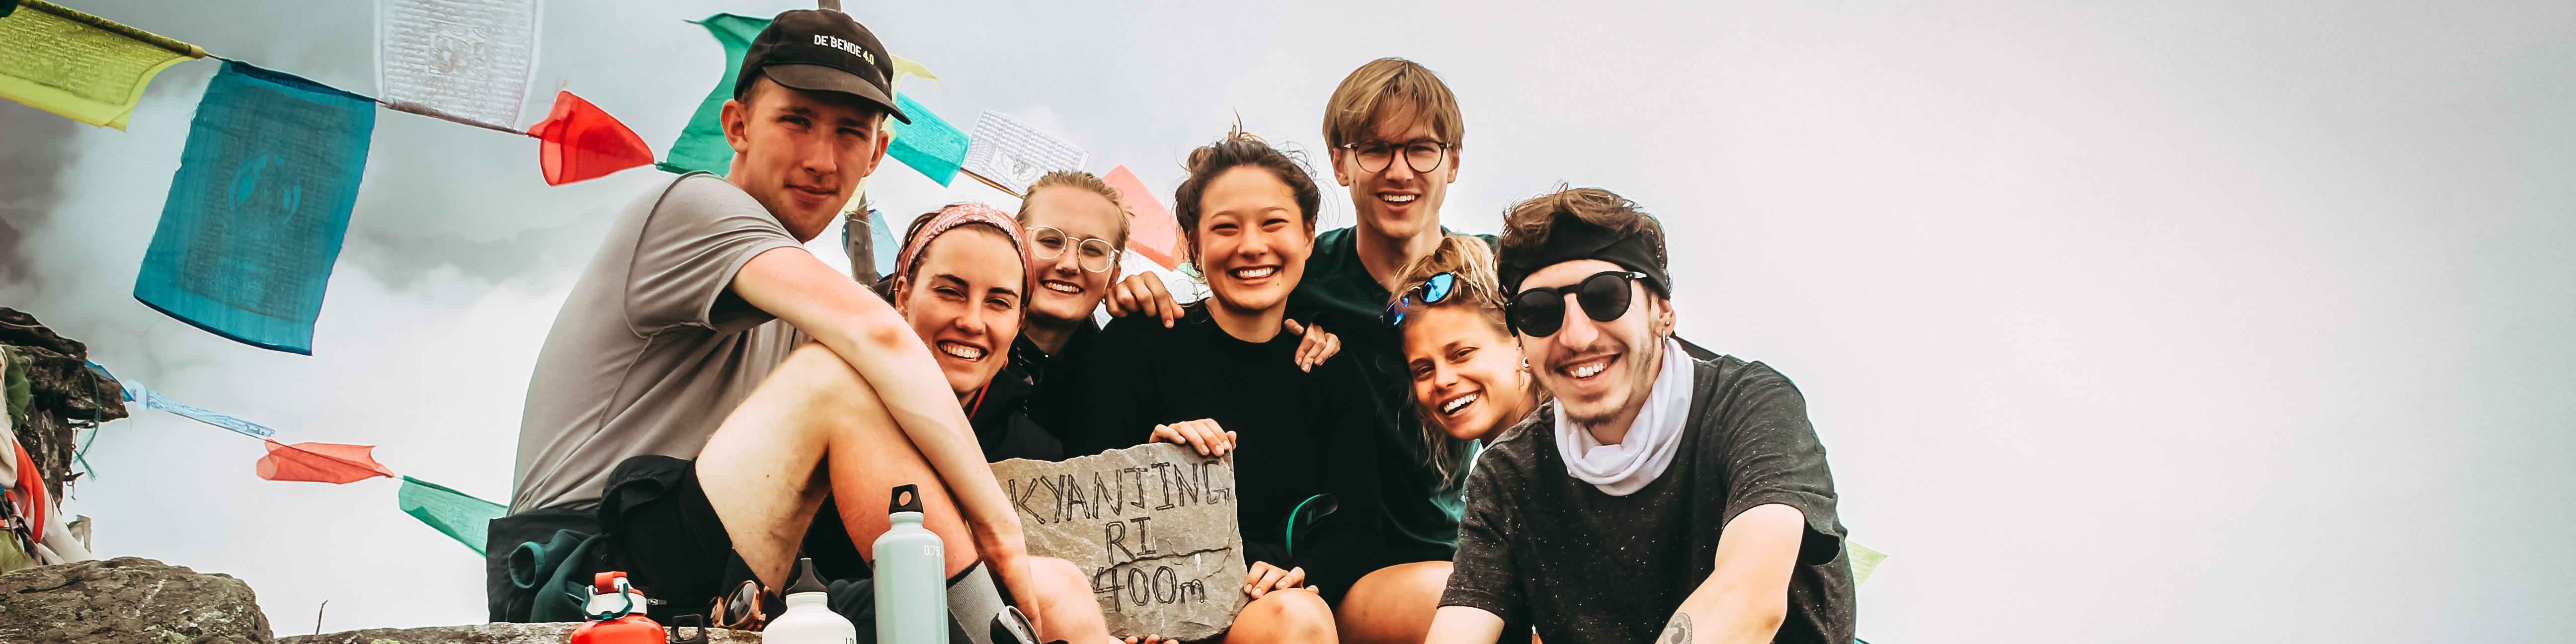 DE BENDE 4.0
KYANJING
RI
400m
0.75